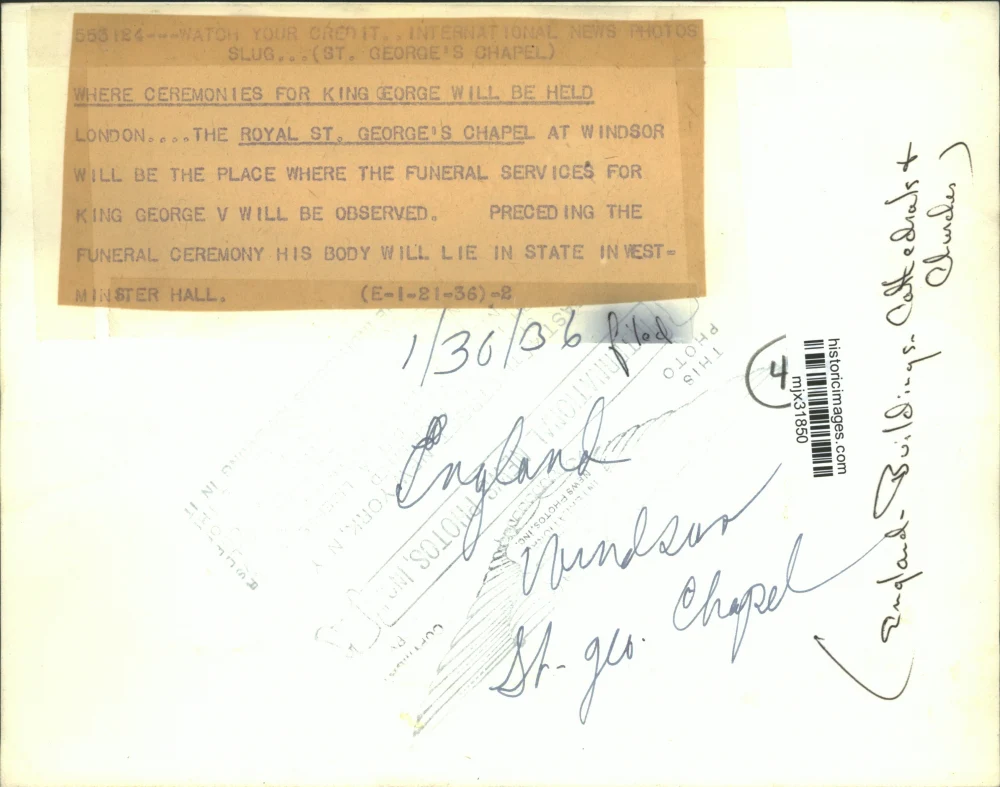 553124---WATCH YOUR CREDIT..INTERNATIONAL NEWS PHOTOS
SLUG...(ST. GEORGE'S CHAPEL)
WHERE CEREMONIES FOR KING GEORGE WILL BE HELD
LONDON....THE ROYAL ST. GEORGE'S CHAPEL AT WINDSOR
WILL BE THE PLACE WHERE THE FUNERAL SERVICES FOR
KING GEORGE V WILL BE OBSERVED. PRECEDING THE
FUNERAL CEREMONY HIS BODY WILL LIE IN STATE IN WEST-
MINSTER HALL. (E-1-21-36)-2
1/30/36 filed
THIS
PHOTO
England
Windsor
St. geo. Chapel
4
historicimages.com
mjx31850
(England-Buildings-Cathedrals +
Churches)